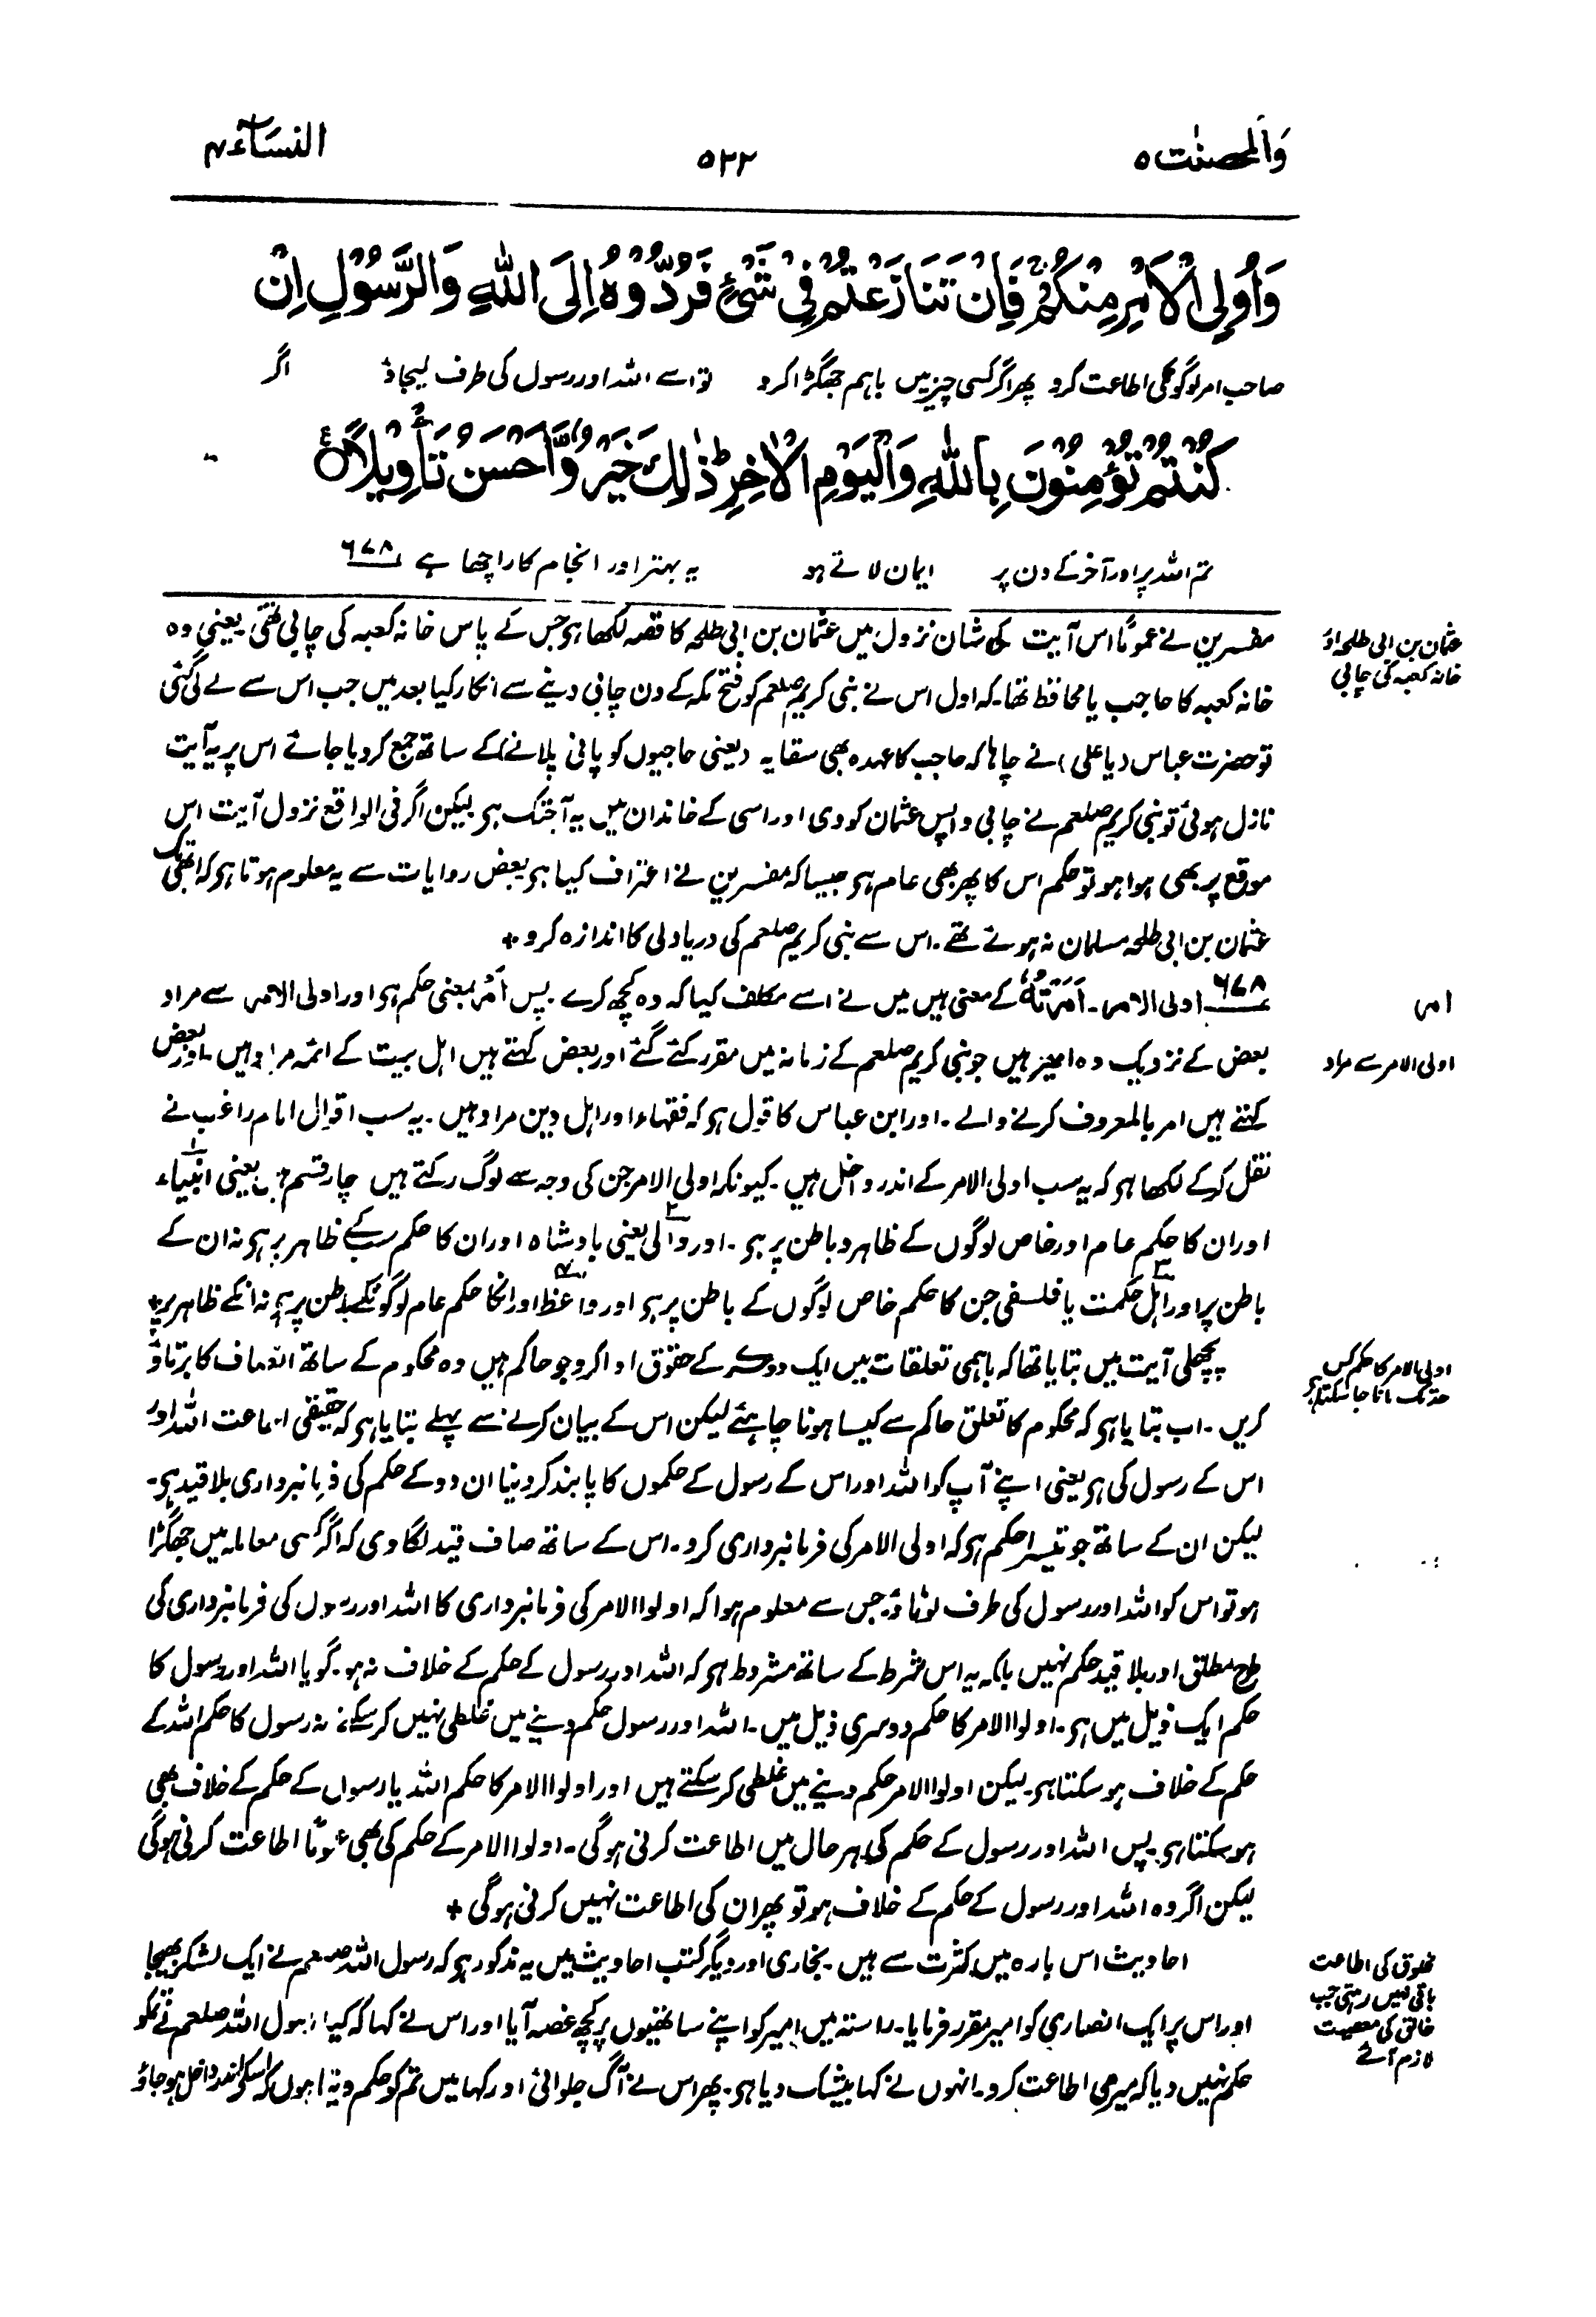 وَالمحصنٰت ۵
۵۲۲
النسَآء ۴
وَاُولِی الْاَمْرِ مِنْكُمْ ۚ فَاِنْ تَنَازَعْتُمْ فِیْ شَیْءٍ فَرُدُّوْهُ اِلَی اللّٰهِ وَالرَّسُوْلِ اِنْ
صاحب امر لوگوں کی اطاعت کرو پھر اگر کسی چیز میں باہم جھگڑا کرو تو اسے اللہ اور رسول کی طرف لیجاؤ اگر
كُنْتُمْ تُؤْمِنُوْنَ بِاللّٰهِ وَالْیَوْمِ الْاٰخِرِ ؕ ذٰلِكَ خَیْرٌ وَّاَحْسَنُ تَاْوِیْلًا ۠
تم اللہ پر اور آخر کے دن پر ایمان لاتے ہو یہ بہتر اور انجام کار اچھا ہے ۶۷۸
عثمان بن ابی طلحہ اور
خانہ کعبہ کی چابی
مفسرین نے عموماً اس آیت کی شان نزول میں عثمان بن ابی طلحہ کا قصہ لکھا ہے جس کے پاس خانہ کعبہ کی چابی تھی یعنی وہ
خانہ کعبہ کا حاجب یا محافظ تھا۔ کہ اول اس نے نبی کریم صلعم کو فتح مکہ کے دن چابی دینے سے انکار کیا بعد میں جب اس سے لے لی گئی
تو حضرت عباس (یا علی) نے چاہا کہ حاجب کا عہدہ بھی سقایہ (یعنی حاجیوں کو پانی پلانے) کے ساتھ جمع کر دیا جائے اس پر یہ آیت
نازل ہوئی تو نبی کریم صلعم نے چابی واپس عثمان کو دی اور اسی کے خاندان میں یہ آجتک ہے لیکن اگر فی الواقع نزول آیت اس
موقع پر بھی ہوا ہو تو حکم اس کا پھر بھی عام ہے جیسا کہ مفسرین نے اعتراف کیا ہے بعض روایات سے یہ معلوم ہوتا ہے کہ ابھی تک
عثمان بن ابی طلحہ مسلمان نہ ہوئے تھے۔ اس سے نبی کریم صلعم کی دریا دلی کا اندازہ کرو +
امر
۶۷۸ اولی الامر۔ اَمَرْتُهٗ کے معنی ہیں میں نے اسے مکلف کیا کہ وہ کچھ کرے۔ پس اَمْر بمعنی حکم ہے اور اولی الامر سے مراد
اولی الامر سے مراد
بعض کے نزدیک وہ امیر ہیں جو نبی کریم صلعم کے زمانہ میں مقرر کئے گئے اور بعض کہتے ہیں اہل بیت کے ائمہ مراد ہیں۔ اور بعض
کہتے ہیں امر بالمعروف کرنے والے۔ اور ابن عباس کا قول ہے کہ فقہاء اور اہل دین مراد ہیں۔ یہ سب اقوال امام راغب نے
نقل کر کے لکھا ہے کہ یہ سب اولی الامر کے اندر داخل ہیں۔ کیونکہ اولی الامر جن کی وجہ سے لوگ رکتے ہیں چار قسم ہیں یعنی ۱ انبیاء
اور ان کا حکم عام اور خاص لوگوں کے ظاہر و باطن پر ہے۔ اور ۲ والی یعنی بادشاہ اور ان کا حکم سب کے ظاہر پر ہے نہ ان کے
باطن پر اور ۳ اہل حکمت یا فلسفی جن کا حکم خاص لوگوں کے باطن پر ہے اور ۴ واعظ اور انکا حکم عام لوگونکے باطن پر ہے نہ انکے ظاہر پر +
اولی الامر کا حکم کس
حد تک مانا جا سکتا ہے
پچھلی آیت میں بتایا تھا کہ باہمی تعلقات میں ایک دوسرے کے حقوق ادا کرو جو حاکم ہیں وہ محکوم کے ساتھ انصاف کا برتاؤ
کریں۔ اب بتایا ہے کہ محکوم کا تعلق حاکم سے کیسا ہونا چاہئے لیکن اس کے بیان کرنے سے پہلے بتایا ہے کہ حقیقی اطاعت اللہ اور
اس کے رسول کی ہے یعنی اپنے آپ کو اللہ اور اس کے رسول کے حکموں کا پابند کر دینا ان دو کے حکم کی فرمانبرداری بلا قید ہے۔
لیکن ان کے ساتھ جو تیسرا حکم ہے کہ اولی الامر کی فرمانبرداری کرو۔ اس کے ساتھ صاف قید لگا دی کہ اگر کسی معاملہ میں جھگڑا
ہو تو اس کو اللہ اور رسول کی طرف لوٹاؤ۔ جس سے معلوم ہوا کہ اولوا الامر کی فرمانبرداری کا اللہ اور رسول کی فرمانبرداری کی
طرح مطلق اور بلا قید حکم نہیں بلکہ یہ اس شرط کے ساتھ مشروط ہے کہ اللہ اور رسول کے حکم کے خلاف نہ ہو۔ گویا اللہ اور رسول کا
حکم ایک ذیل میں ہے۔ اولوا الامر کا حکم دوسری ذیل میں۔ اللہ اور رسول حکم دینے میں غلطی نہیں کر سکتے نہ رسول کا حکم اللہ کے
حکم کے خلاف ہو سکتا ہے۔ لیکن اولوا الامر حکم دینے میں غلطی کر سکتے ہیں اور اولوا الامر کا حکم اللہ یا رسول کے حکم کے خلاف بھی
ہو سکتا ہے۔ پس اللہ اور رسول کے حکم کی ہر حال میں اطاعت کرنی ہوگی۔ اولوا الامر کے حکم کی بھی عموماً اطاعت کرنی ہوگی
لیکن اگر وہ اللہ اور رسول کے حکم کے خلاف ہو تو پھر ان کی اطاعت نہیں کرنی ہوگی +
مخلوق کی اطاعت
باقی نہیں رہتی جب
خالق کی معصیت
لازم آئے
احادیث اس بارہ میں کثرت سے ہیں۔ بخاری اور دیگر کتب احادیث میں یہ مذکور ہے کہ رسول اللہ صلعم نے ایک لشکر بھیجا
اور اس پر ایک انصاری کو امیر مقرر فرمایا۔ راستہ میں امیر کو اپنے ساتھیوں پر کچھ غصہ آیا اور اس نے کہا کہ کیا رسول اللہ صلعم نے تمکو
حکم نہیں دیا کہ میری اطاعت کرو۔ انہوں نے کہا بیشک دیا ہے۔ پھر اس نے آگ جلوائی اور کہا میں تم کو حکم دیتا ہوں کہ اسکے اندر داخل ہو جاؤ